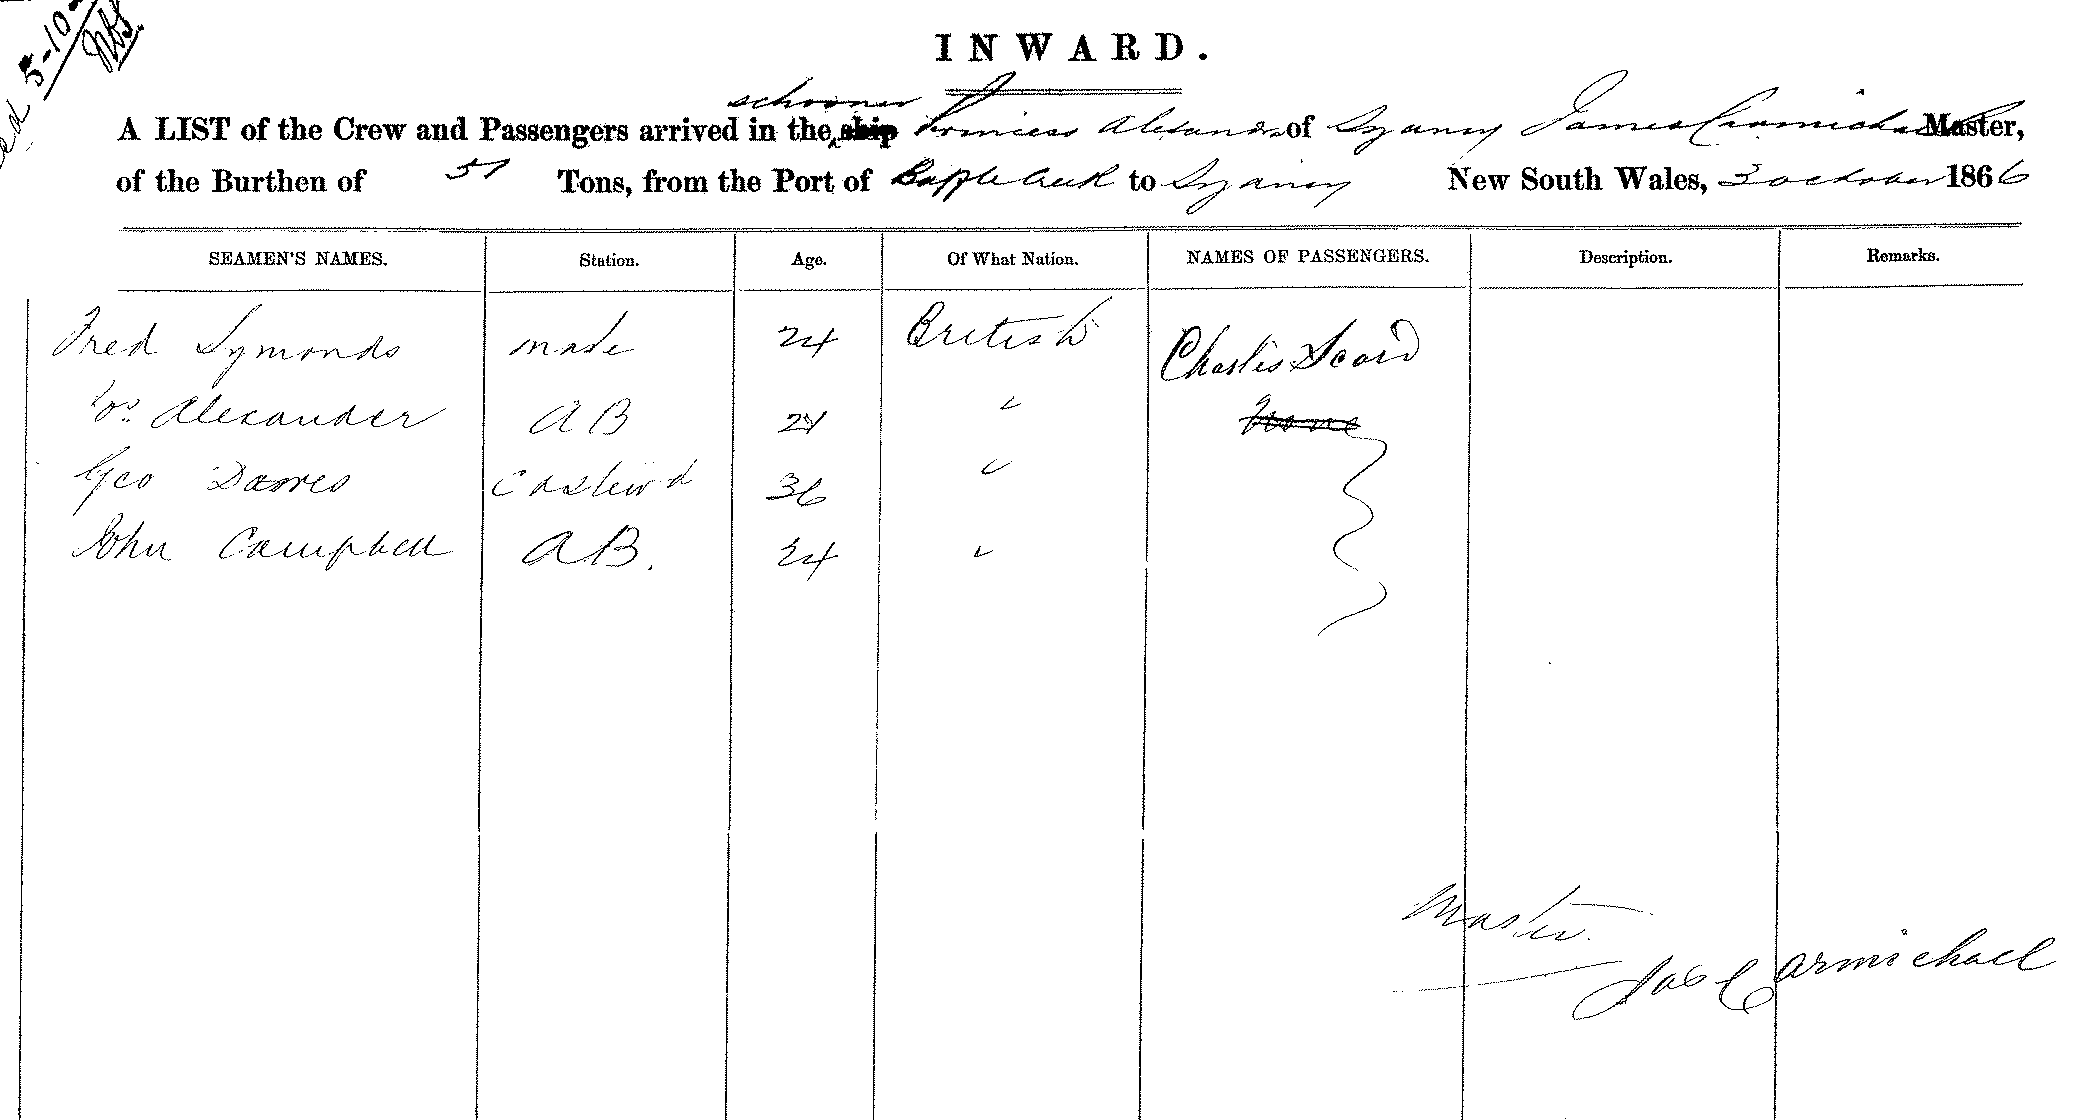 5-10
INWARD.
schooner
A LIST of the Crew and Passengers arrived in the ship Princess Alexandra of Sydney James Carmichael Master,
of the Burthen of 51 Tons, from the Port of to Sydney New South Wales, 3 October 1866
SEAMEN'S NAMES. Station. Age. Of What Nation. NAMES OF PASSENGERS. Description. Remarks.
Fred Symonds mate 24 British Charles Scard
Alexander AB 21 "
None
Geo Dawes 36 "
John Campbell AB. 24 "
Master.
Jas Carmichael